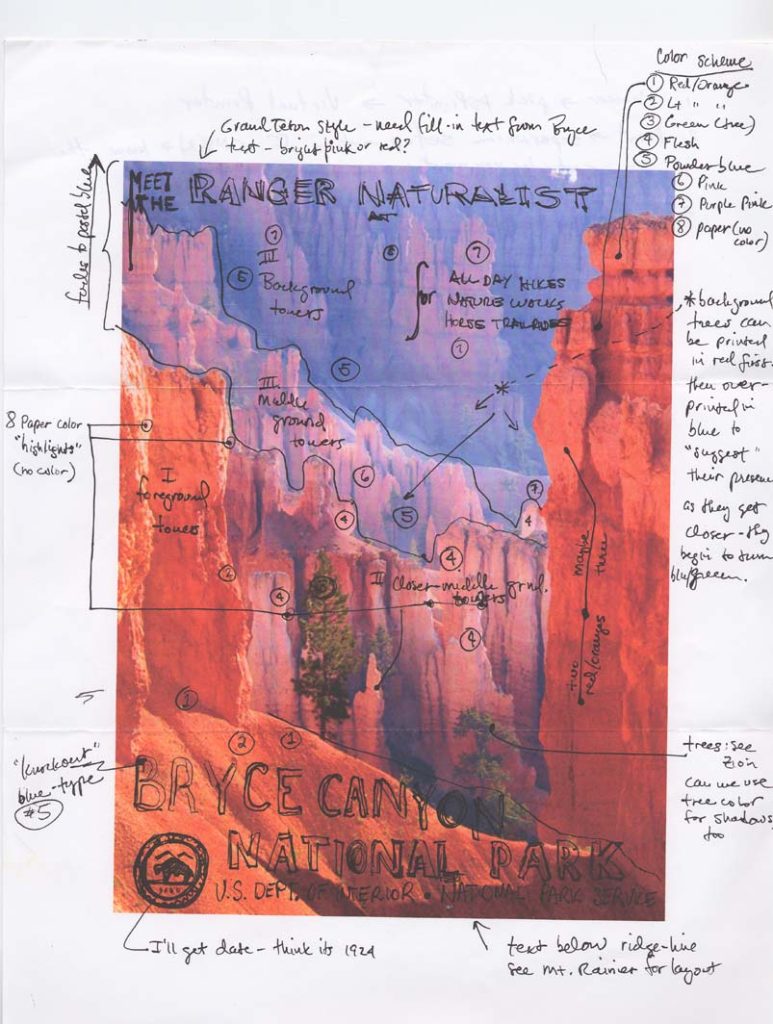 Color scheme
① Red/Orange
② Lt " "
③ Green (tree)
④ Flesh
⑤ Powder blue
⑥ Pink
⑦ Purple Pink
⑧ paper (no color)
Grand Teton style - need fill-in text from Bryce
text - bright pink or red?
fades to pastel blue
MEET
THE
RANGER NATURALIST
AT
⑦
III
Background
towers
⑤
⑧
⑦
for
ALL DAY HIKES
NATURE WALKS
HORSE TRAIL RIDES
⑦
*
* background
trees can
be printed
in red first.
then over-
printed in
blue to
"suggest"
their presence
as they get
closer - they
begin to turn
blue/green.
⑤
III
Middle
ground
towers
8 Paper color
"highlights"
(no color)
I
foreground
towers
⑥
⑤
④
⑦
4
④
②
④
③
II
Closer-middle grnd.
towers
④
maybe
three
two
red/oranges
①
②
①
"knockout"
blue-type
#5
trees: see
Zion
can we use
tree color
for shadows
too
BRYCE CANYON
NATIONAL PARK
U.S. DEPT. OF INTERIOR • NATIONAL PARK SERVICE
I'll get date - think its 1924
text below ridge-line
see Mt. Rainier for layout